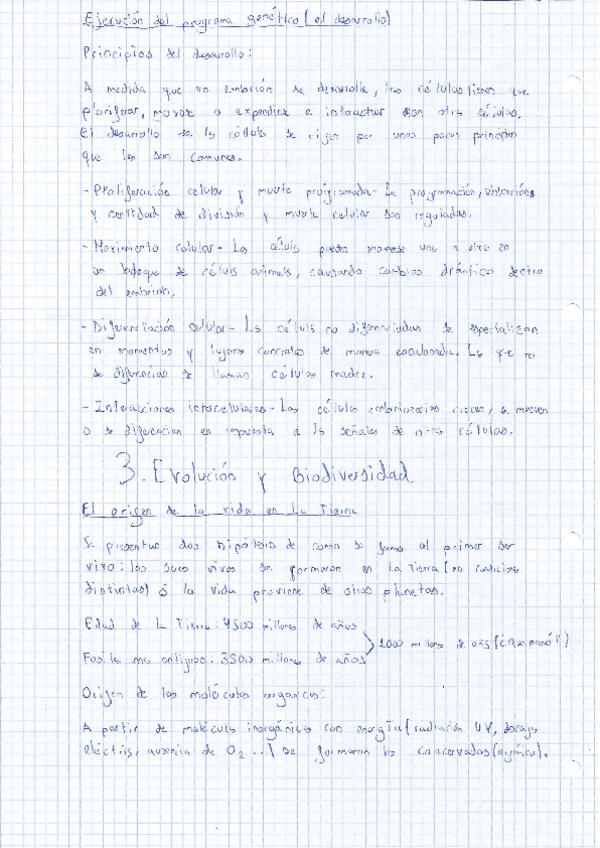 Ejecución del programa genético (el desarrollo)
Principios del desarrollo:
A medida que un embrión se desarrolla, las células tienen que
plorificar, moverse o expandirse e interactuar con otras células.
El desarrollo de las células se rigen por unos pocos principios
que les son comunes.
- Proliferación celular y muerte programada - La programación,
y cantidad de división y muerte celular son reguladas.
- Movimiento celular - Las células pueden moverse una a otra en
un bloque de células animals, causando cambios drámticos dentro
del embrión.
- Diferenciación celular - Las células no diferenciadas se especializan
en momentos y lugares concretos de manera escalonada. Las que no
se diferencian se llaman células madre.
- Interacciones intercelulares - Las células embrionarias crecen, se mueven
o se diferencian en respuesta a las señales de otras células.
3. Evolución y Biodiversidad
El origen de la vida en La Tierra
Se presentan dos hipótesis de como se formo el primer ser
vivo: los seres vivos se formaron en la Tierra (en condiciones
distintas) ó la vida proviene de otros planetas.
Edad de la Tierra: 4500 millones de años
1000 millones de años (¿que pasó?)
Fosiles mas antiguos: 3500 millones de años
Origen de las moléculas organicas:
A partir de moléculas inorgánicas con energía (radiación UV, descargas
eléctricas, ausencia de O2 ...) se formaron los coacervados (orgánico).